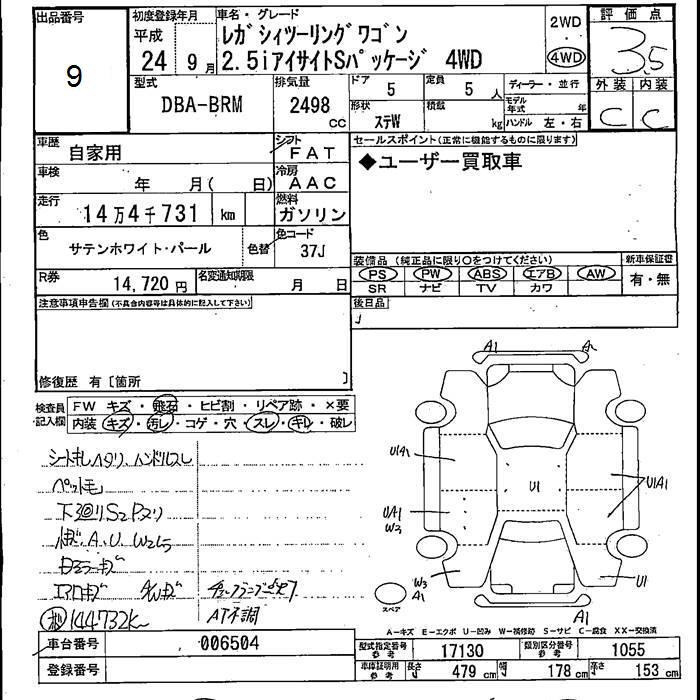 出品番号
9
初度登録年月
平成
24 年 9 月
車名・グレード
レガシィツーリングワゴン
2.5iアイサイトSパッケージ 4WD
2WD
4WD
評価点
3.5
外装 内装
C C
型式
DBA-BRM
排気量
2498
CC
ドア
5
定員
5 人
形状
ステW
積載
kg
ディーラー・並行
モデル年式 年
ハンドル 左・右
車歴
自家用
シフト
FAT
セールスポイント(正常に機能するものに限ります)
◆ユーザー買取車
車検
年 月( 日)
冷房
AAC
走行
14万4千731 km
燃料
ガソリン
色
サテンホワイト・パール
色替
色コード
37J
装備品 (純正品に限り○をつけてください)
新車保証書
PS PW ABS エアB AW
SR ナビ TV カワ
有・無
R券
14,720円
名変通知期限
月 日
注意事項申告欄(不具合内容等は具体的に記入して下さい)
後日品
修復歴 有〔箇所 〕
検査員記入欄
FW キズ・飛石・ヒビ割・リペア跡・×要
内装 キズ・汚レ・コゲ・穴・スレ・キレ・破レ
ペット毛
A.U
144732K
AT不調
A1
U1A1
UA1
W2
U1
U1A1
W3
A1
U1
A1
スペア
A-キズ E-エクボ U-凹み W-補修跡 S-サビ C-腐食 XX-交換済
車台番号
006504
登録番号
型式指定番号
参考
17130
類別区分番号
参考
1055
車庫証明用
参考
長さ 479 cm 幅 178 cm 高さ 153 cm